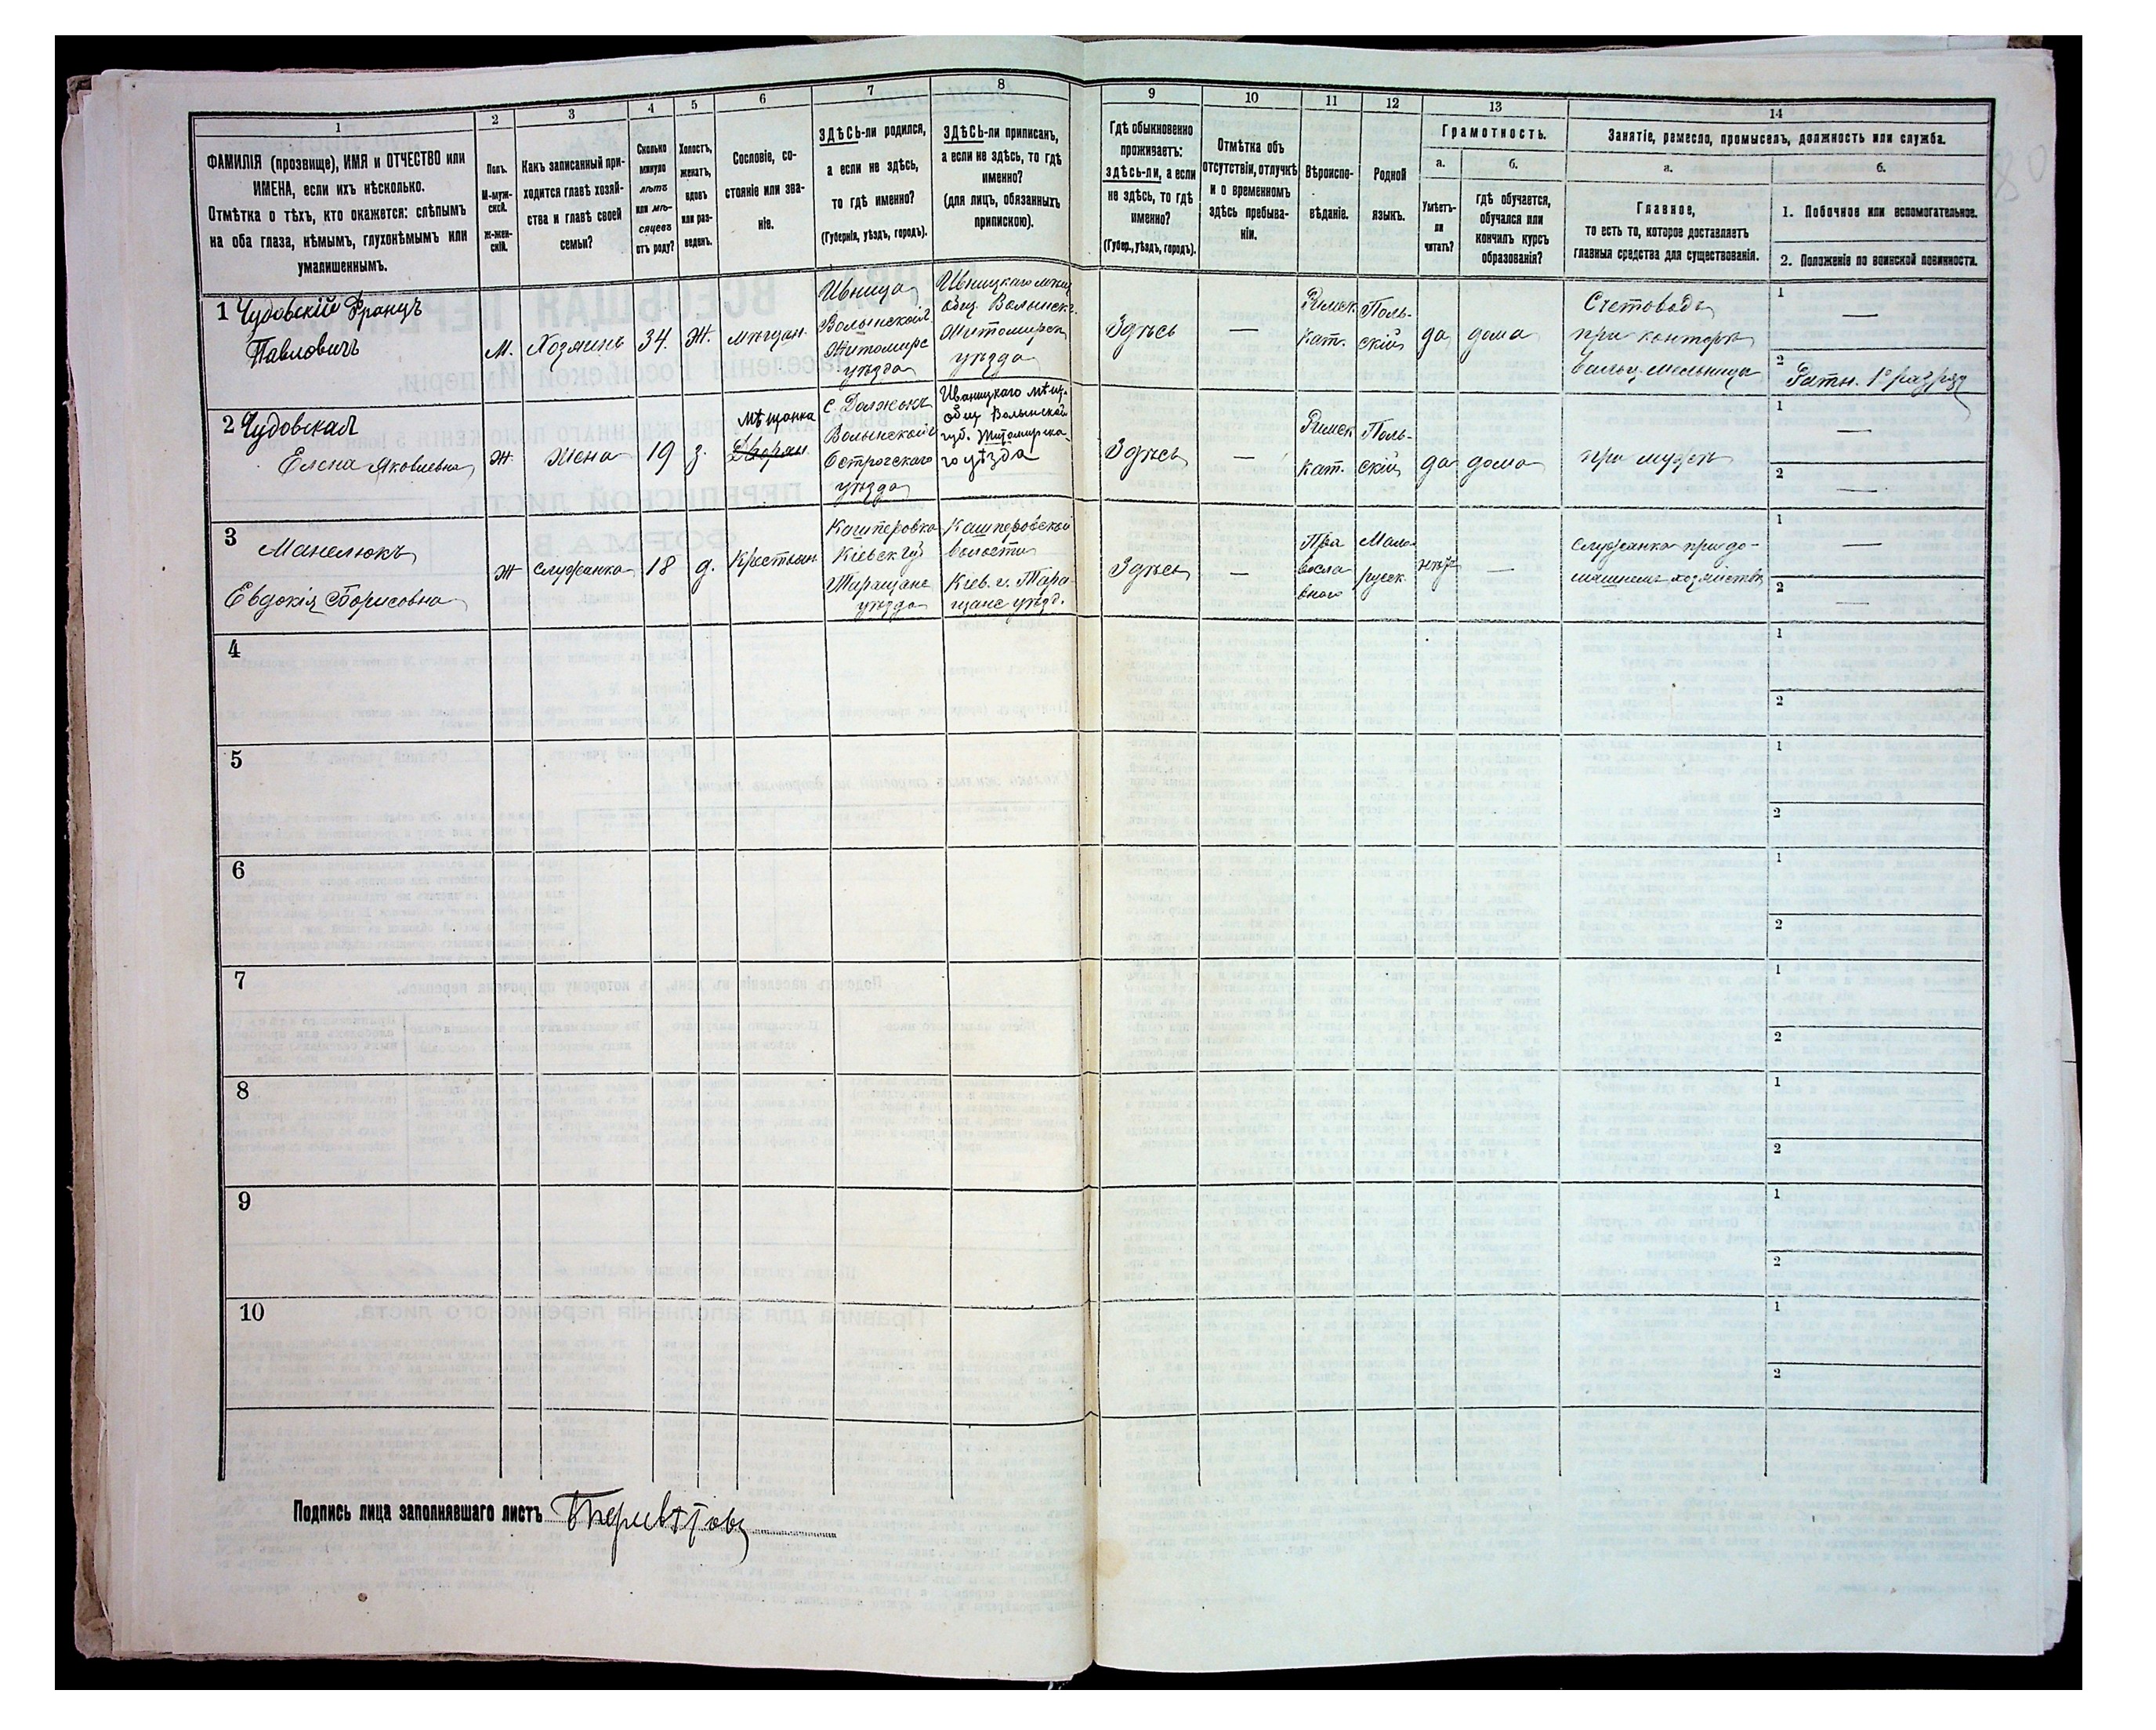 1 2 3 4 5 6 7 8 9 10 11 12 13 14
ФАМИЛІЯ (прозвище), ИМЯ и ОТЧЕСТВО или
ИМЕНА, если ихъ нѣсколько.
Отмѣтка о тѣхъ, кто окажется: слѣпымъ
на оба глаза, нѣмымъ, глухонѣмымъ или
умалишеннымъ.
Полъ.
М-муж-
ской.
ж-жен-
скій.
Какъ записанный при-
ходится главѣ хозяй-
ства и главѣ своей
семьи?
Сколько
минуло
лѣтъ
или мѣ-
сяцевъ
отъ роду?
Холостъ,
женатъ,
вдовъ
или раз-
веденъ.
Сословіе, со-
стояніе или зва-
ніе.
ЗДѢСЬ-ли родился,
а если не здѣсь,
то гдѣ именно?
(Губернія, уѣздъ, городъ).
ЗДѢСЬ-ли приписанъ,
а если не здѣсь, то гдѣ
именно?
(для лицъ, обязанныхъ
припискою).
Гдѣ обыкновенно
проживаетъ:
здѣсь-ли, а если
не здѣсь, то гдѣ
именно?
(Губер., уѣздъ, городъ).
Отмѣтка объ
отсутствіи, отлучкѣ
и о временномъ
здѣсь пребыва-
ніи.
Вѣроиспо-
вѣданіе.
Родной
языкъ.
Грамотность.
а.
Умѣетъ-
ли
читать?
б.
гдѣ обучается,
обучался или
кончилъ курсъ
образованія?
Занятіе, ремесло, промыселъ, должность или служба.
а.
Главное,
то есть то, которое доставляетъ
главныя средства для существованія.
б.
1. Побочное или вспомогательное.
2. Положеніе по воинской повинности.
1 Чудовскій Францъ
Павловичъ
М.
Хозяинъ
34.
Ж.
мѣщан.
Ивница
Волынской г.
Житомирс
уѣзда
Ивницкаго мѣщ.
общ. Волынск г.
Житомирск
уѣзда
Здѣсь
—
Римск
Кат.
Поль-
скій
да
дома
Счетоводъ
при конторѣ
вальц. мельницы
1
—
2
Ратн. 1о разряд
2 Чудовская
Елена Яковлевна
Ж.
Жена
19
з.
мѣщанка
Дворян.
с. Должокъ
Волынской г
Острогскаго
уѣзда
Иваницкаго мѣщ.
общ Волынской
губ. Житомирска-
го уѣзда
Здѣсь
—
Римск
Кат.
Поль-
скій
да
дома
при мужѣ
1
—
2
—
3
Манелюкъ
Евдокія Борисовна
Ж
служанка
18
д.
Крестьян
Кашперовка
Кіевск гу
Таращанс
уѣзда
Кашперовской
волости
Кіев. г. Тара
щанс уѣзд.
Здѣсь
—
Пра
восла
вного
Мало
русск
нѣтъ
—
служанка при до-
машнемъ хозяйствѣ
1
—
2
—
4
1
2
5
1
2
6
1
2
7
1
2
8
1
2
9
1
2
10
1
2
Подпись лица заполнявшаго листъ